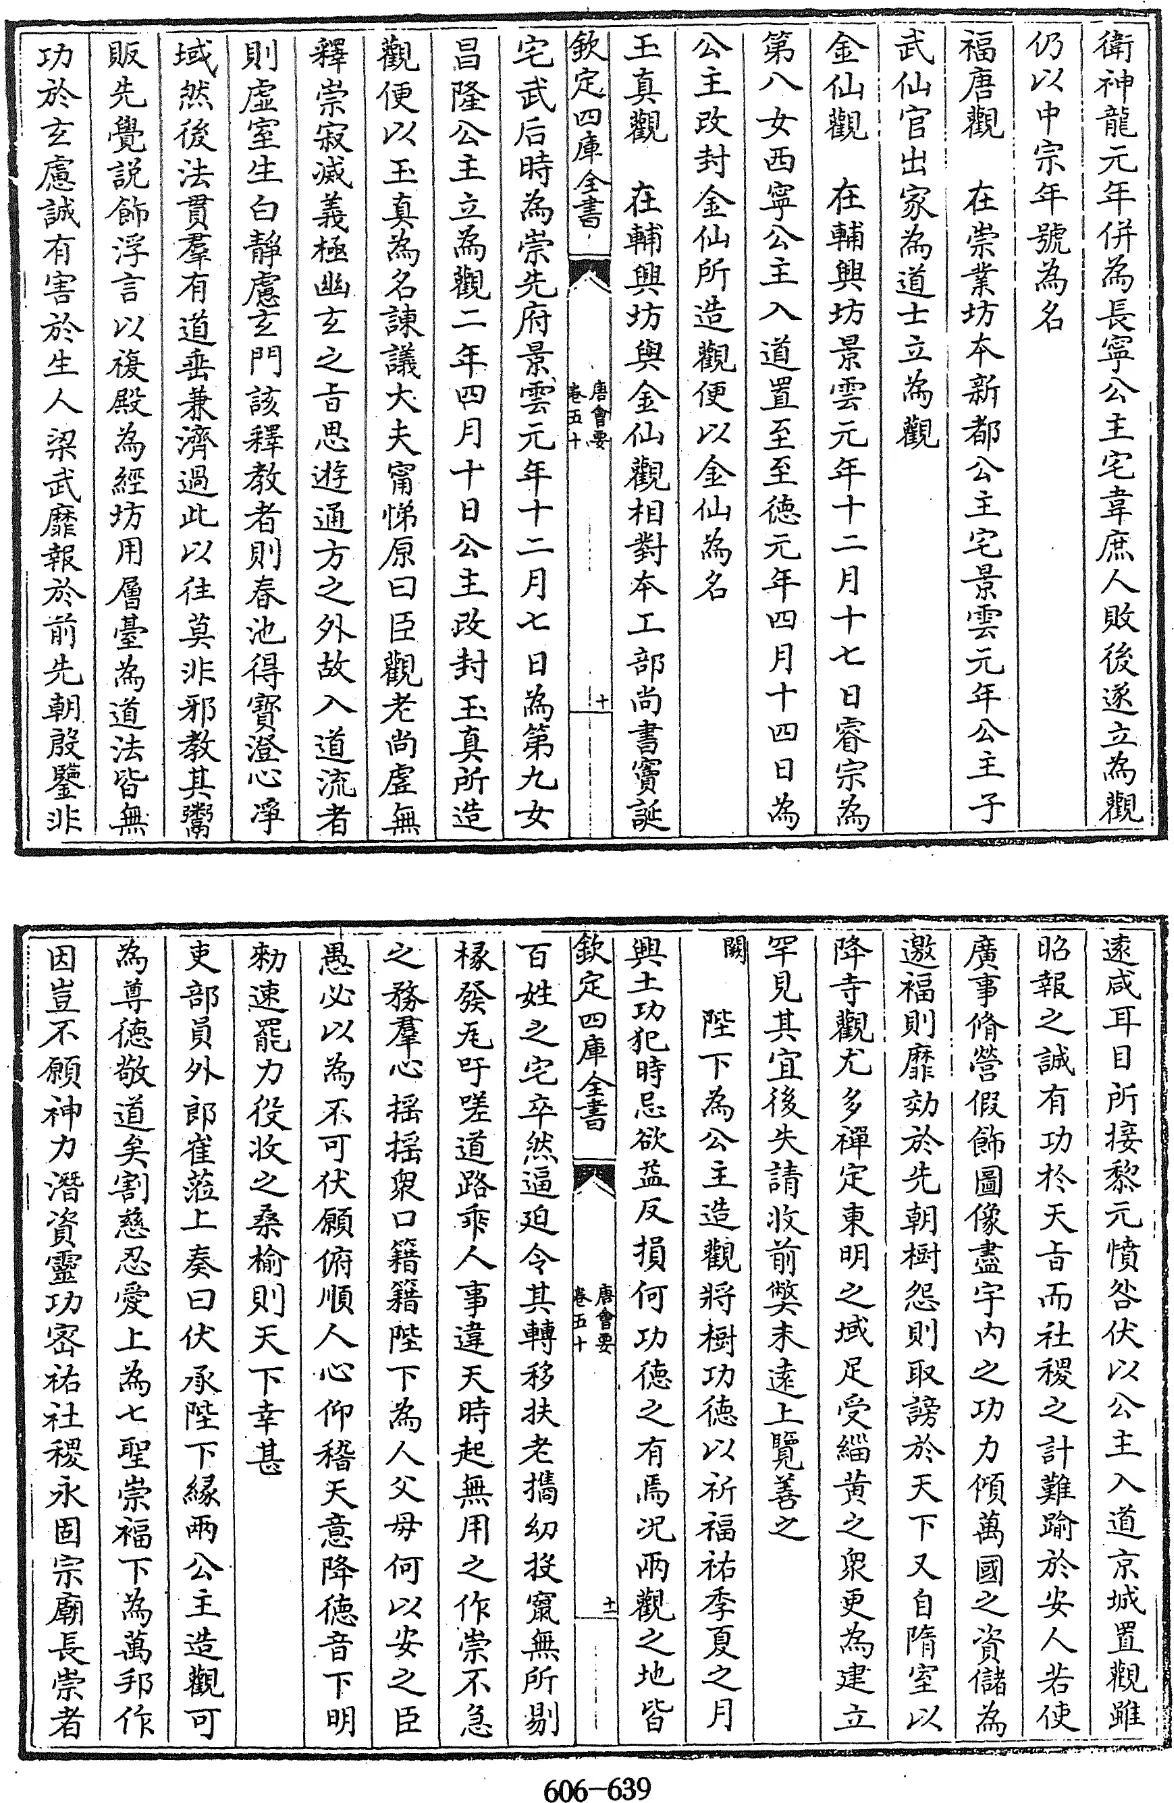 衛神龍元年併為長寧公主宅韋庶人敗後遂立為觀
仍以中宗年號為名
福唐觀　在崇業坊本新都公主宅景雲元年公主子
武仙官出家為道士立為觀
金仙觀　在輔興坊景雲元年十二月十七日睿宗為
第八女西寧公主入道置至至德元年四月十四日為
公主改封金仙所造觀便以金仙為名
玉真觀　在輔興坊與金仙觀相對本工部尚書竇誕
欽定四庫全書
唐會要
卷五十
十
宅武后時為崇先府景雲元年十二月七日為第九女
昌隆公主立為觀二年四月十日公主改封玉真所造
觀便以玉真為名諫議大夫甯悌原曰臣觀老尚虛無
釋崇寂滅義極幽玄之旨思遊通方之外故入道流者
則虛室生白靜慮玄門該釋教者則春池得寶澄心淨
域然後法貫羣有道垂兼濟過此以往莫非邪教其鬻
販先覺説飾浮言以複殿為經坊用層臺為道法皆無
功於玄慮誠有害於生人梁武靡報於前先朝殷鑒非
遠咸耳目所接黎元憤咎伏以公主入道京城置觀雖
昭報之誠有功於天旨而社稷之計難踰於安人若使
廣事脩營假飾圖像盡宇内之功力傾萬國之資儲為
邀福則靡効於先朝樹怨則取謗於天下又自隋室以
降寺觀尤多禪定東明之域足受緇黄之衆更為建立
罕見其宜後失請收前弊未遠上覽善之
闕　陛下為公主造觀將樹功德以祈福祐季夏之月
興土功犯時忌欲益反損何功德之有焉况兩觀之地皆
欽定四庫全書
唐會要
卷五十
十一
百姓之宅卒然逼迫令其轉移扶老攜幼投竄無所剔
椽發瓦吁嗟道路乖人事違天時起無用之作崇不急
之務羣心揺揺衆口籍籍陛下為人父母何以安之臣
愚必以為不可伏願俯順人心仰稽天意降德音下明
勑速罷力役收之桑榆則天下幸甚
吏部員外郎崔蒞上奏曰伏承陛下緣兩公主造觀可
為尊德敬道矣割慈忍愛上為七聖崇福下為萬邦作
因豈不願神力潛資靈功密祐社稷永固宗廟長崇者
606-639